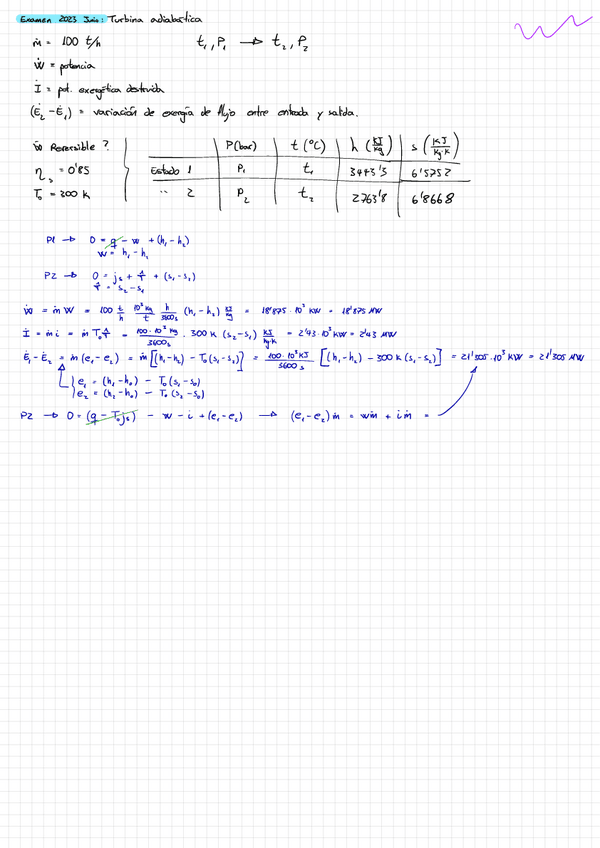 Examen 2023 Junio: Turbina adiabática
ṁ = 100 t/h t₁, P₁ → t₂, P₂
Ẇ = potencia
İ = pot. exergética destruida
(Ė₂ - Ė₁) = variación de exergía de flujo entre entrada y salida.
Ẇ Reversible ?
η_s = 0'85
T₀ = 300 K
P(bar) t (°C) h (KJ/Kg) s (KJ/Kg·K)
Estado 1 P₁ t₁ 3443'3 6'5752
" 2 P₂ t₂ 2763'8 6'8668
P1 → 0 = q - w + (h₁ - h₂)
w = h₁ - h₂
P2 → 0 = js + ₁ + (s₁ - s₂)
= s₂ - s₁
Ẇ = ṁ W = 100 t/h 10³ Kg/t h/3600s (h₁ - h₂) KJ/Kg = 18'875 · 10³ KW = 18'875 MW
İ = ṁ i = ṁ T₀ = 100·10³ Kg/3600s · 300 K (s₂ - s₁) KJ/Kg·K = 2'43·10³ KW = 2'43 MW
Ė₁ - Ė₂ = ṁ (e₁ - e₂) = ṁ [(h₁ - h₂) - T₀ (s₁ - s₂)] = 100·10³ KJ/3600 s [(h₁ - h₂) - 300 K (s₁ - s₂)] = 21'305 · 10³ KW = 21'305 MW
e₁ = (h₁ - h₀) - T₀ (s₁ - s₀)
e₂ = (h₂ - h₀) - T₀ (s₂ - s₀)
P2 → 0 = (q - T₀ js) - w - i + (e₁ - e₂) → (e₁ - e₂) ṁ = wṁ + i ṁ =